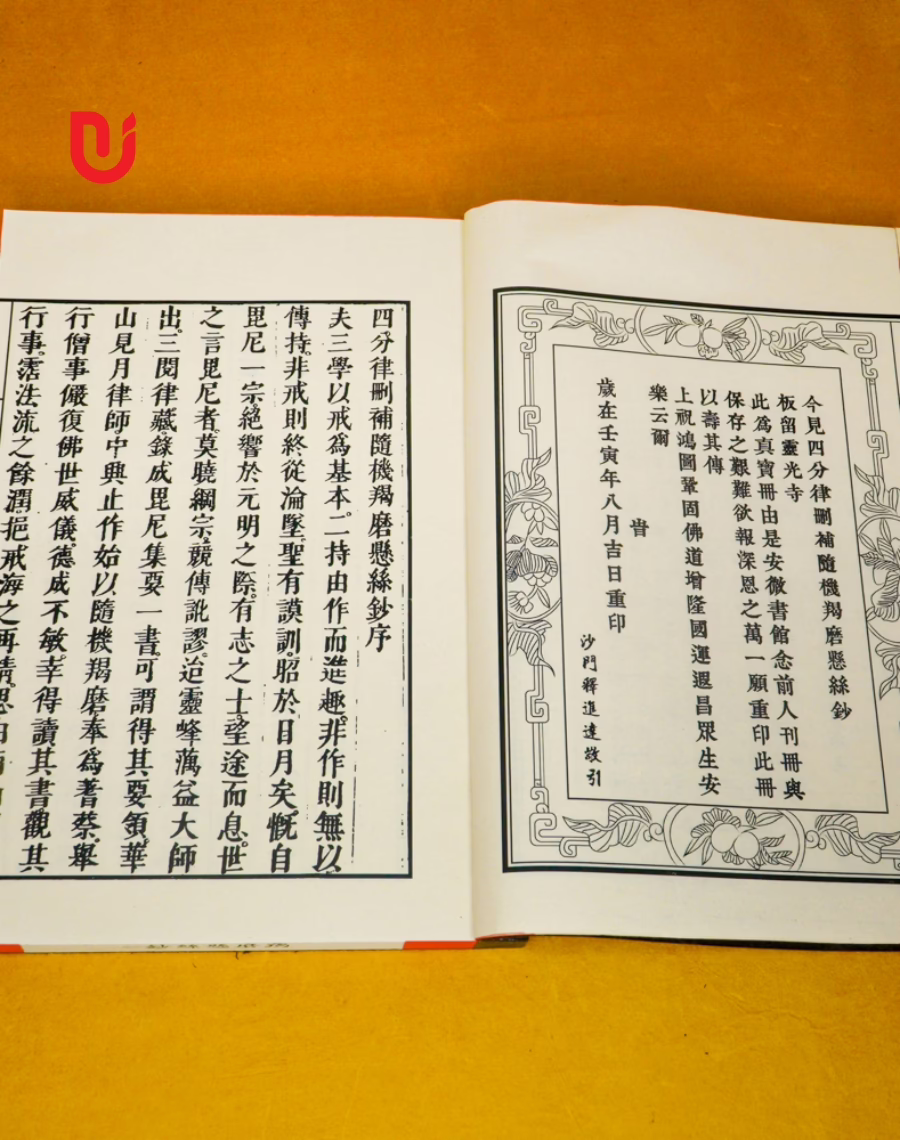 今見四分律刪補隨機羯磨懸絲鈔
板留靈光寺
此爲真寶冊由是安微書館念前人刊冊與
保存之艱難欲報深恩之萬一願重印此冊
以壽其傳
上祝鴻圖鞏固佛道增隆國運遐昌眾生安
樂云爾
旹
歲在壬寅年八月吉日重印
沙門釋進達敬引
四分律刪補隨機羯磨懸絲鈔序
夫三學以戒爲基本。二持由作而進趣。非作則無以
傳持。非戒則終從淪墜。聖有謨訓。昭於日月矣。慨自
毘尼一宗。絕響於元明之際。有志之士。望途而息。世
之言毘尼者。莫曉綱宗。競傳訛謬。迨靈峰蕅益大師
出。三閱律藏。錄成毘尼集要一書。可謂得其要領。華
山見月律師中興止作。始以隨機羯磨奉爲蓍蔡。舉
行僧事。儼復佛世威儀。德成不敏。幸得讀其書。觀其
行事。霑法流之餘潤。挹戒海之再清。